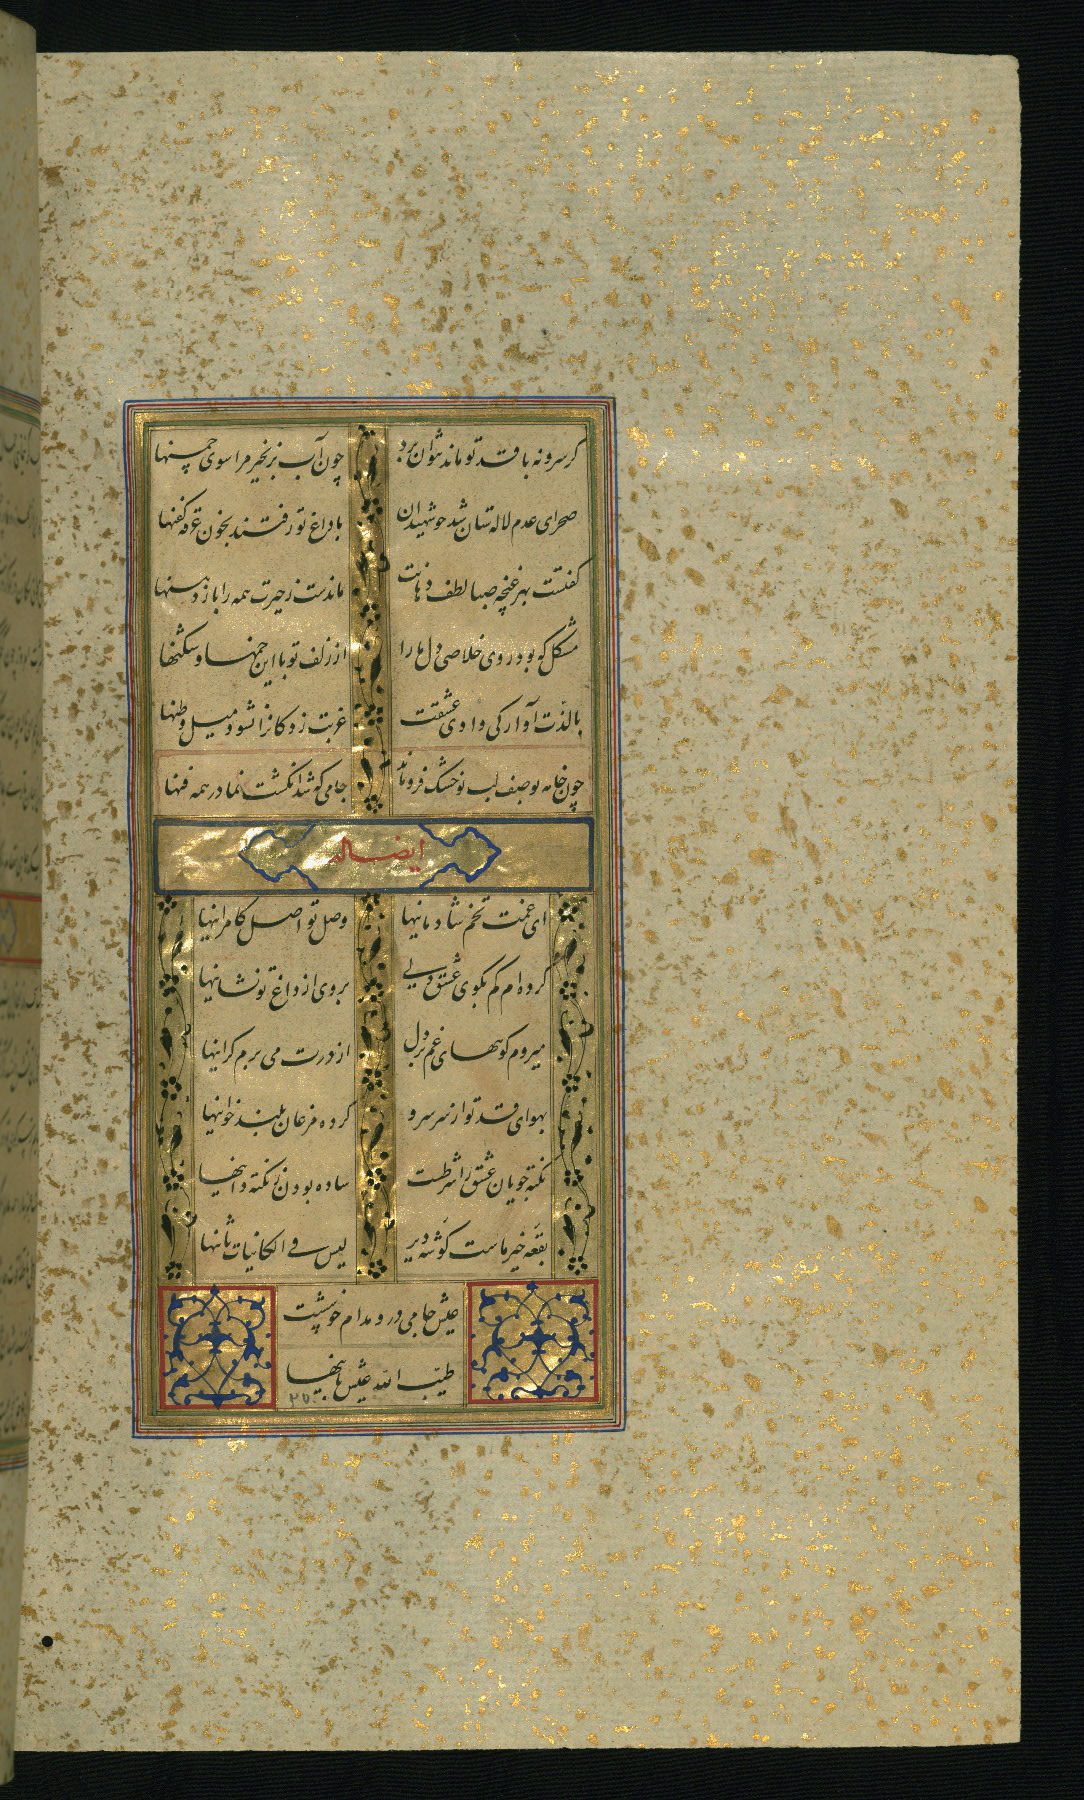 گر سرو نه با قد تو ماند نتوان برد
چون آب بزنجیر مرا سوی چمنها
صحرای عدم لاله ستان شد چو شهیدان
با داغ تو رفتند بخون غرقه کفنها
گفتست بهر غنچه صبا لطف دهانت
ماندست ز حیرت همه را باز دهنها
مشکل که بود روی خلاصی دل ما را
از زلف تو با این خمها و شکنها
با لذت آوارکی وادی عشقت
غربت زدکانرا نشود میل وطنها
چون خامه بوصف لب تو خشک فروماند
جامی که شد انکشت نما در همه فنها
ایضا له
ای غمت تخم شادمانیها
وصل تو اصل کامرانیها
کرده ام کم بکوی عشق دلی
بروی از داغ تو نشانیها
میروم کوههای غم بر دل
از درت می برم کرانیها
بهوای قد تو از سر سرو
کرده مرغان بلند خوانیها
نکته جویان عشق را شرطست
ساده بودن ز نکته دانیها
بقعه خیر ماست کوشه دیر
لیس فی الکائنات ثانیها
عیش جامی درو مدام خوشست
طیب الله عیش بانیها